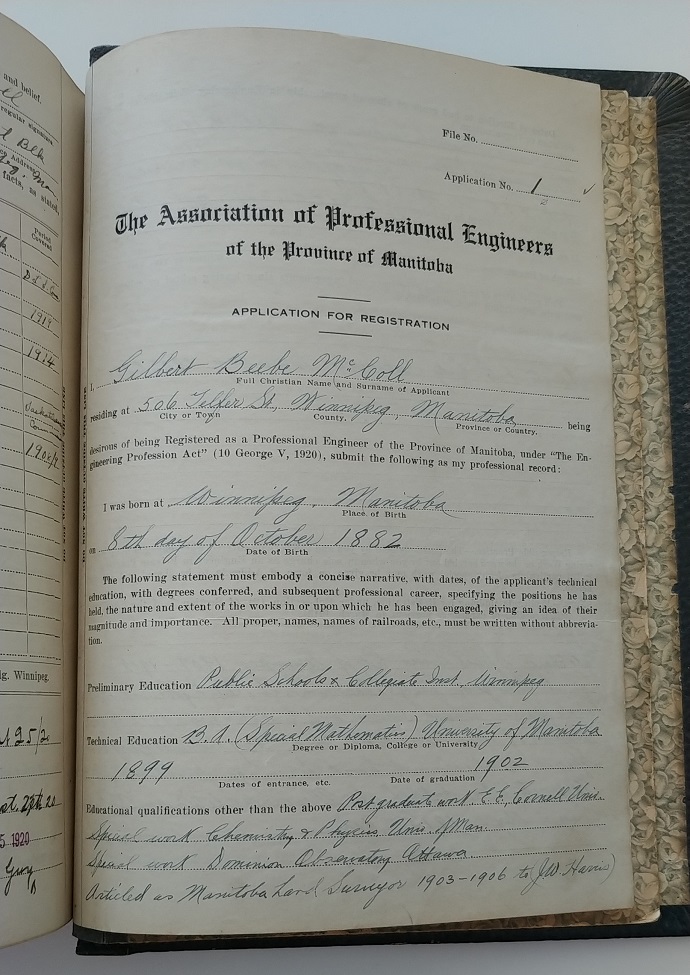 and belief.
regular signature.
facts, as stated,
Period Covered
1919
1914
lg. Winnipeg.
25/20
5 1920
Guy
File No.
Application No. 1
The Association of Professional Engineers
of the Province of Manitoba
APPLICATION FOR REGISTRATION
I, Gilbert Beebe McColl
Full Christian Name and Surname of Applicant
residing at 506 Telfer St, Winnipeg, Manitoba being
City or Town County. Province or Country.
desirous of being Registered as a Professional Engineer of the Province of Manitoba, under "The En-
gineering Profession Act" (10 George V, 1920), submit the following as my professional record:
I was born at Winnipeg, Manitoba
Place of Birth
on 8th day of October 1882
Date of Birth
The following statement must embody a concise narrative, with dates, of the applicant's technical
education, with degrees conferred, and subsequent professional career, specifying the positions he has
held, the nature and extent of the works in or upon which he has been engaged, giving an idea of their
magnitude and importance. All proper, names, names of railroads, etc., must be written without abbrevia-
tion.
Preliminary Education Public Schools & Collegiate Inst. Winnipeg
Technical Education B.A. (Special Mathematics) University of Manitoba
Degree or Diploma, College or University
1899 1902
Dates of entrance, etc. Date of graduation
Educational qualifications other than the above Post graduate work E.E, Cornell Univ.
Special work Chemistry & Physics Univ. of Man.
Special work Dominion Observatory Ottawa
Articled as Manitoba Land Surveyor 1903-1906 to J.W. Harris)